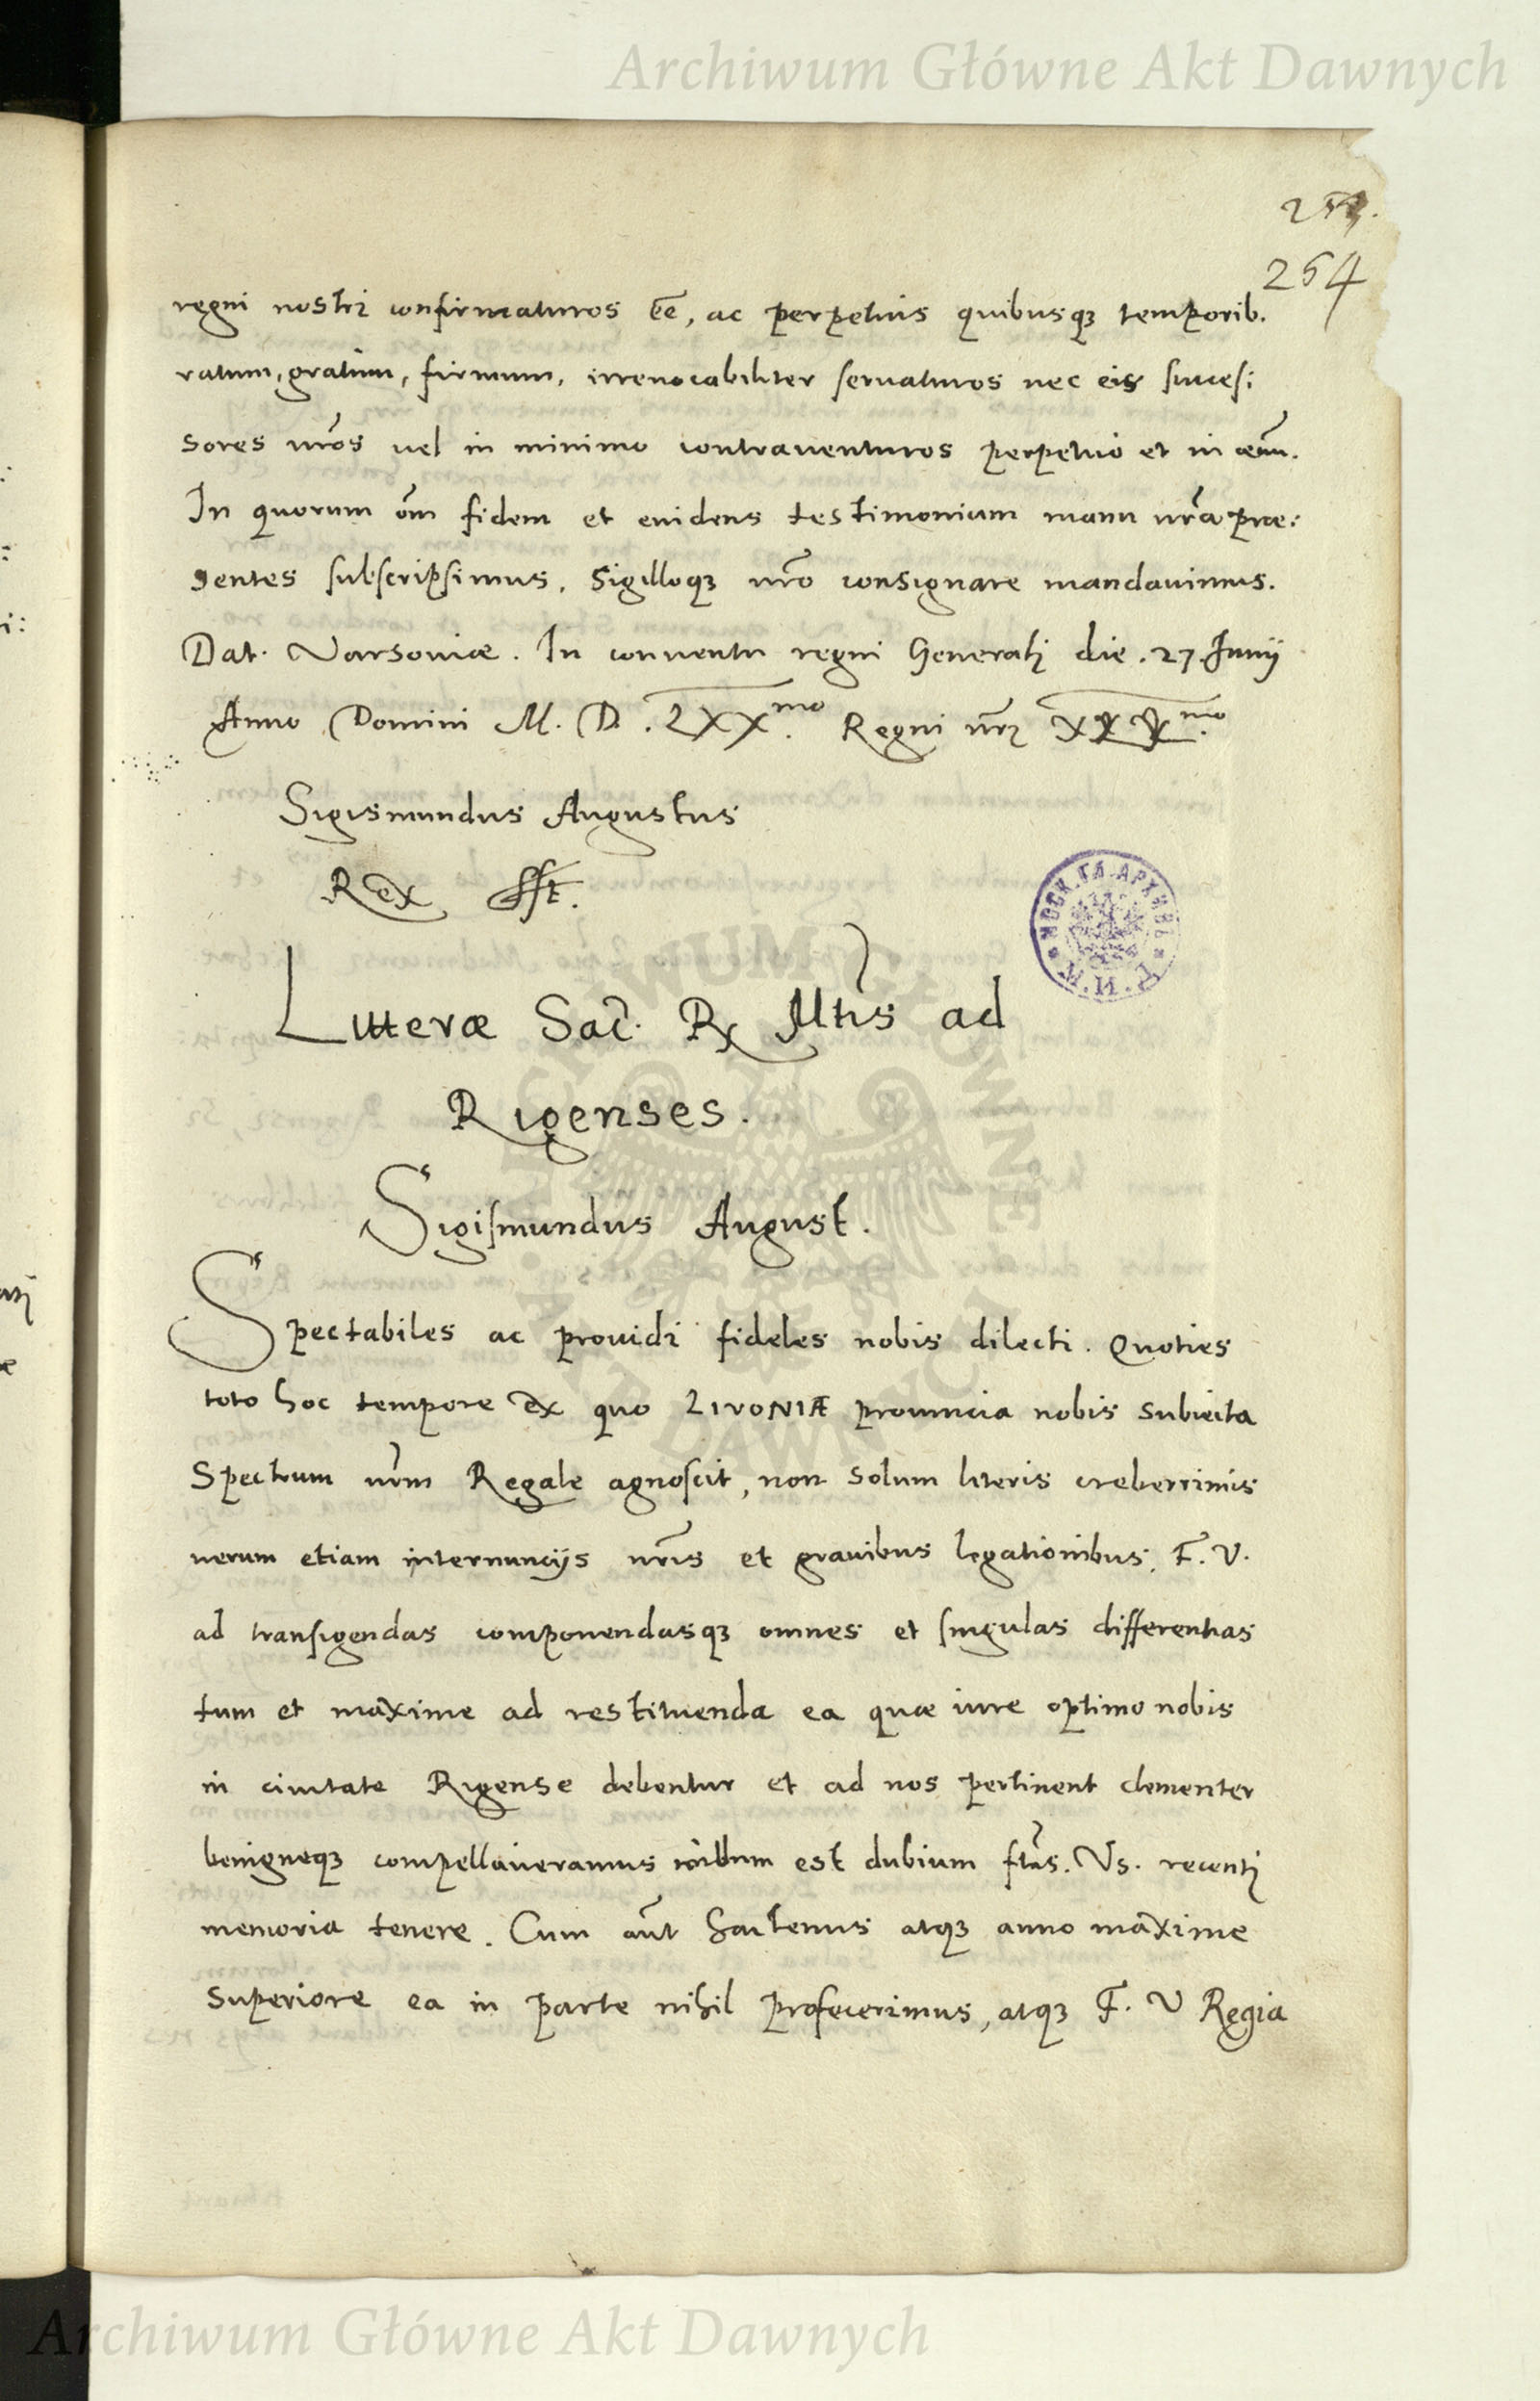 Archiwum Główne Akt Dawnych
254
regni nostri confirmaturos eē, ac perpetuis quibusqꝫ temporib.
ratum, gratum, firmum, irreuocabiliter seruaturos nec eis succes:
sores nr̃os uel in minimo contrauenturos perpetuo et in aeuũ.
In quorum om̃ fidem et euidens testimonium manu nr̃a prae:
sentes subscripsimus, Sigilloqꝫ nr̃o consignare mandauimus.
Dat. Varsouiae. In conuentu regni Generali die. 27 Junij
Anno Domini M. D. LXX.mo Regni nr̃i
Sigismundus Augustus
Rex sst.
Litterae Sac̃. Rx Mtis ad
Rigenses.
Sigismundus August.
Spectabiles ac prouidi fideles nobis dilecti. Quoties
toto hoc tempore ex quo LIVONIÆ prouincia nobis subiecta
Spectrum nr̃m Regale agnoscit, non solum literis creberrimis
uerum etiam internuncijs nr̃is et grauibus legationibus, F. V.
ad transigendas componendasqꝫ omnes et singulas differentias
tum et maxime ad restituenda ea quae iure optimo nobis
in ciuitate Rigense debentur et ad nos pertinent clementer
benigneqꝫ compellaueramus nullum est dubium ftas. Vs. recenti
memoria tenere. Cum aũt hactenus atqꝫ anno maxime
superiore ea in parte nihil profecerimus, atqꝫ F. V Regia
МОСК. ГЛ. АРХИВЪ
М. И. Д.
ARCHIWUM GŁÓWNE
AKT DAWNYCH
Archiwum Główne Akt Dawnych